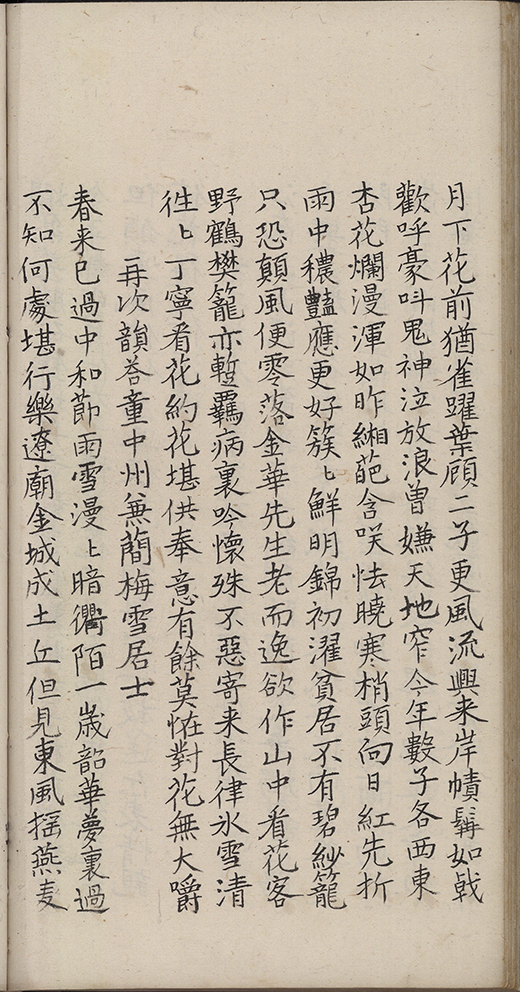 月下花前猶雀躍葉顧二子更風流興来岸幘髯如戟
歡呼豪呌鬼神泣放浪曾嫌天地窄今年數子各西東
杏花爛漫渾如昨緗葩含咲怯曉寒梢頭向日紅先折
雨中穠豔應更好簇〻鮮明錦初濯貧居不有碧紗籠
只恐顛風便零落金華先生老而逸欲作山中看花客
野鶴樊籠亦蹔羈病裏吟懷殊不惡寄来長律氷雪清
徃〻丁寧看花約花堪供奉意有餘莫恠對花無大嚼
再次韻荅童中州兼蕳梅雪居士
春来已過中和節雨雪漫〻暗衢陌一歲韶華夢裏過
不知何處堪行樂遼廟金城成土丘但見東風揺燕麦